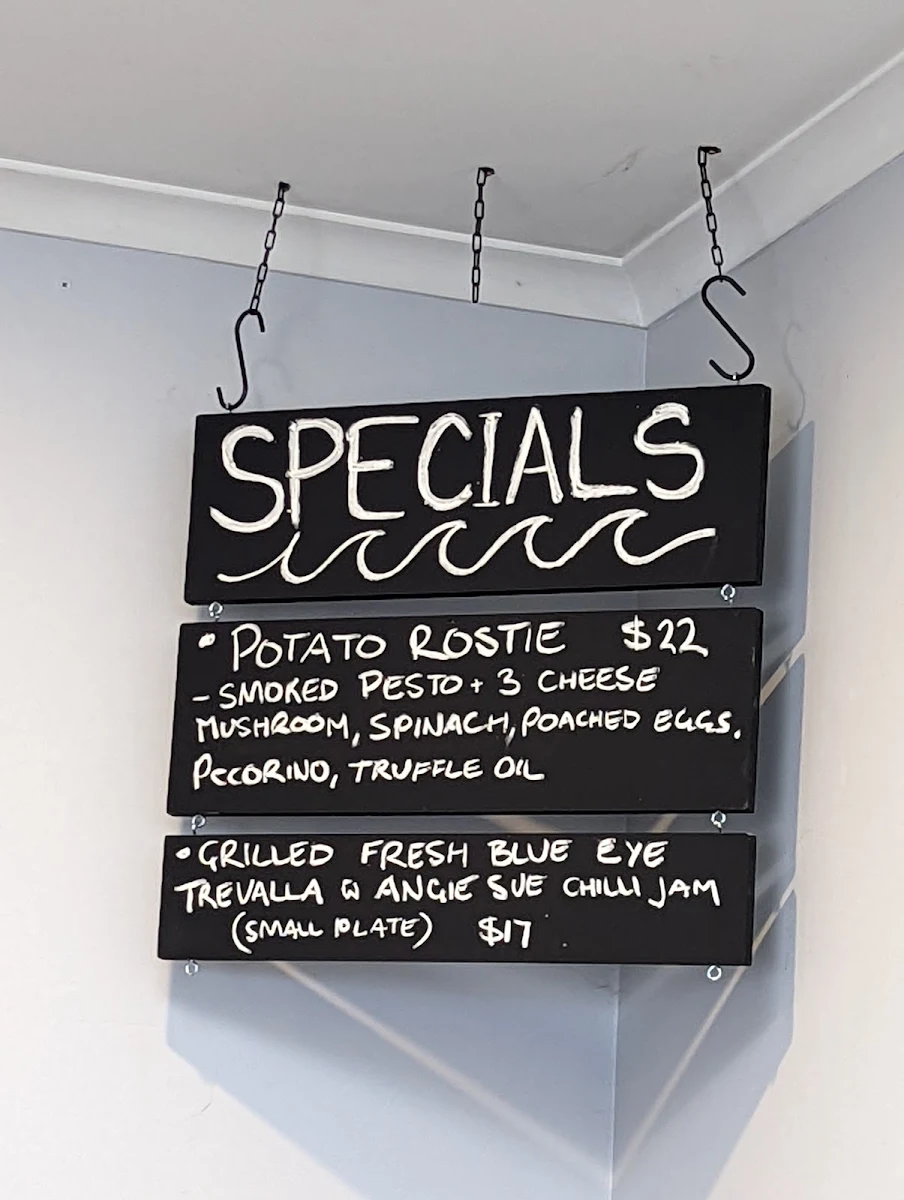 SPECIALS
• POTATO ROSTIE $22
- SMOKED PESTO + 3 CHEESE
MUSHROOM, SPINACH, POACHED EGGS.
PECORINO, TRUFFLE OIL
• GRILLED FRESH BLUE EYE
TREVALLA W ANGIE SUE CHILLI JAM
(SMALL PLATE) $17